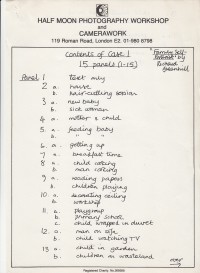 HALF MOON PHOTOGRAPHY WORKSHOP
and
CAMERAWORK
119 Roman Road, London E2. 01-980 8798
Contents of Case 1
15 panels (1-15)
"Family Self-Portrait" by Richard Greenhill
Panel 1 text only
2 a. house
b. hair-cutting session
3 a. new baby
b. sick woman
4 a. mother & child
5 a. feeding baby
b. " "
6 a. getting up
7 a. breakfast time
8 a. child ironing
b. man ironing
9 a. reading papers
b. children playing
10 a. decorating ceiling
b. workshop
11 a. playgroup
b. primary school
c. child wrapped in duvet
12 a. man on sofa
b. child watching TV
13 a. child in garden
b. children on wasteland
over →
Registered Charity No.